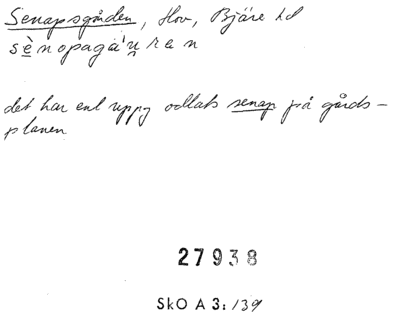 Senapsgården, Hov, Bjäre hd
sènopagá'u̯ran
det har enl uppg odlats senap på gårds-
planen
27938
SkO A 3: 139